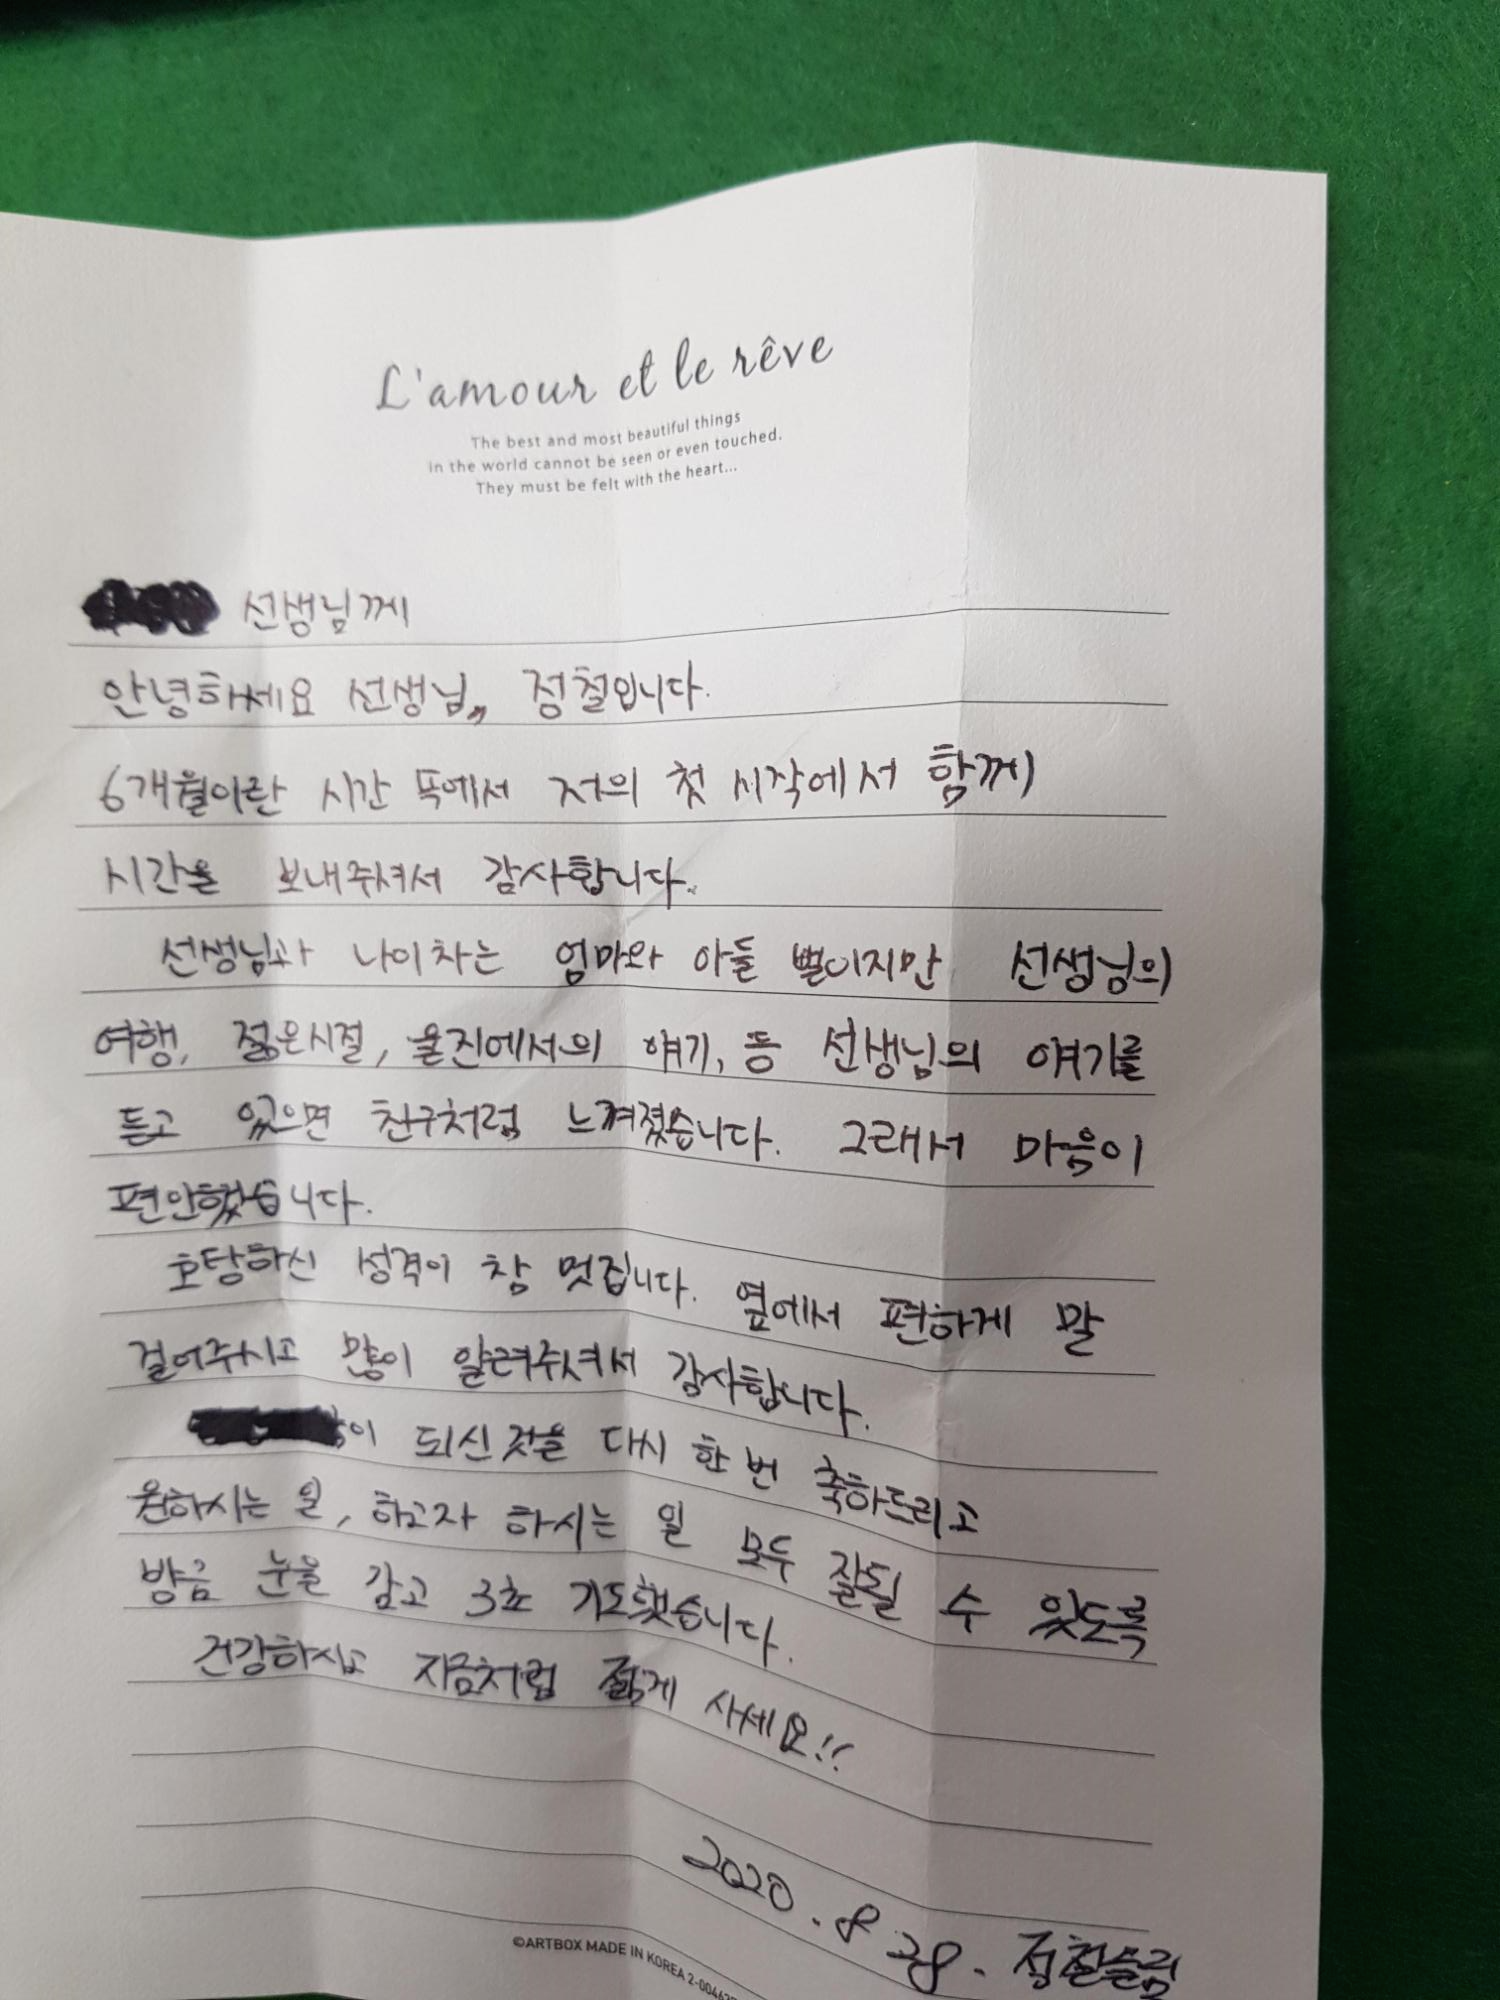 L'amour et le rêve
The best and most beautiful things
in the world cannot be seen or even touched.
They must be felt with the heart...
선생님께
안녕하세요 선생님„ 정철입니다.
6개월이란 시간 폭에서 저의 첫 시작에서 함께
시간을 보내주셔서 감사합니다.
선생님과 나이차는 엄마와 아들 뻘이지만 선생님의
여행, 젊은시절, 울진에서의 얘기, 등 선생님의 얘기를
듣고 있으면 친구처럼 느껴졌습니다. 그래서 마음이
편안했습니다.
호탕하신 성격이 참 멋집니다. 옆에서 편하게 말
걸어주시고 많이 알려주셔서 감사합니다.
이 되신것을 다시 한번 축하드리고
원하시는 일, 하고자 하시는 일 모두 잘될 수 있도록
방금 눈을 감고 3초 기도했습니다.
건강하시고 지금처럼 젊게 사세요!!
2020.8.28. 정철올림
©ARTBOX MADE IN KOREA